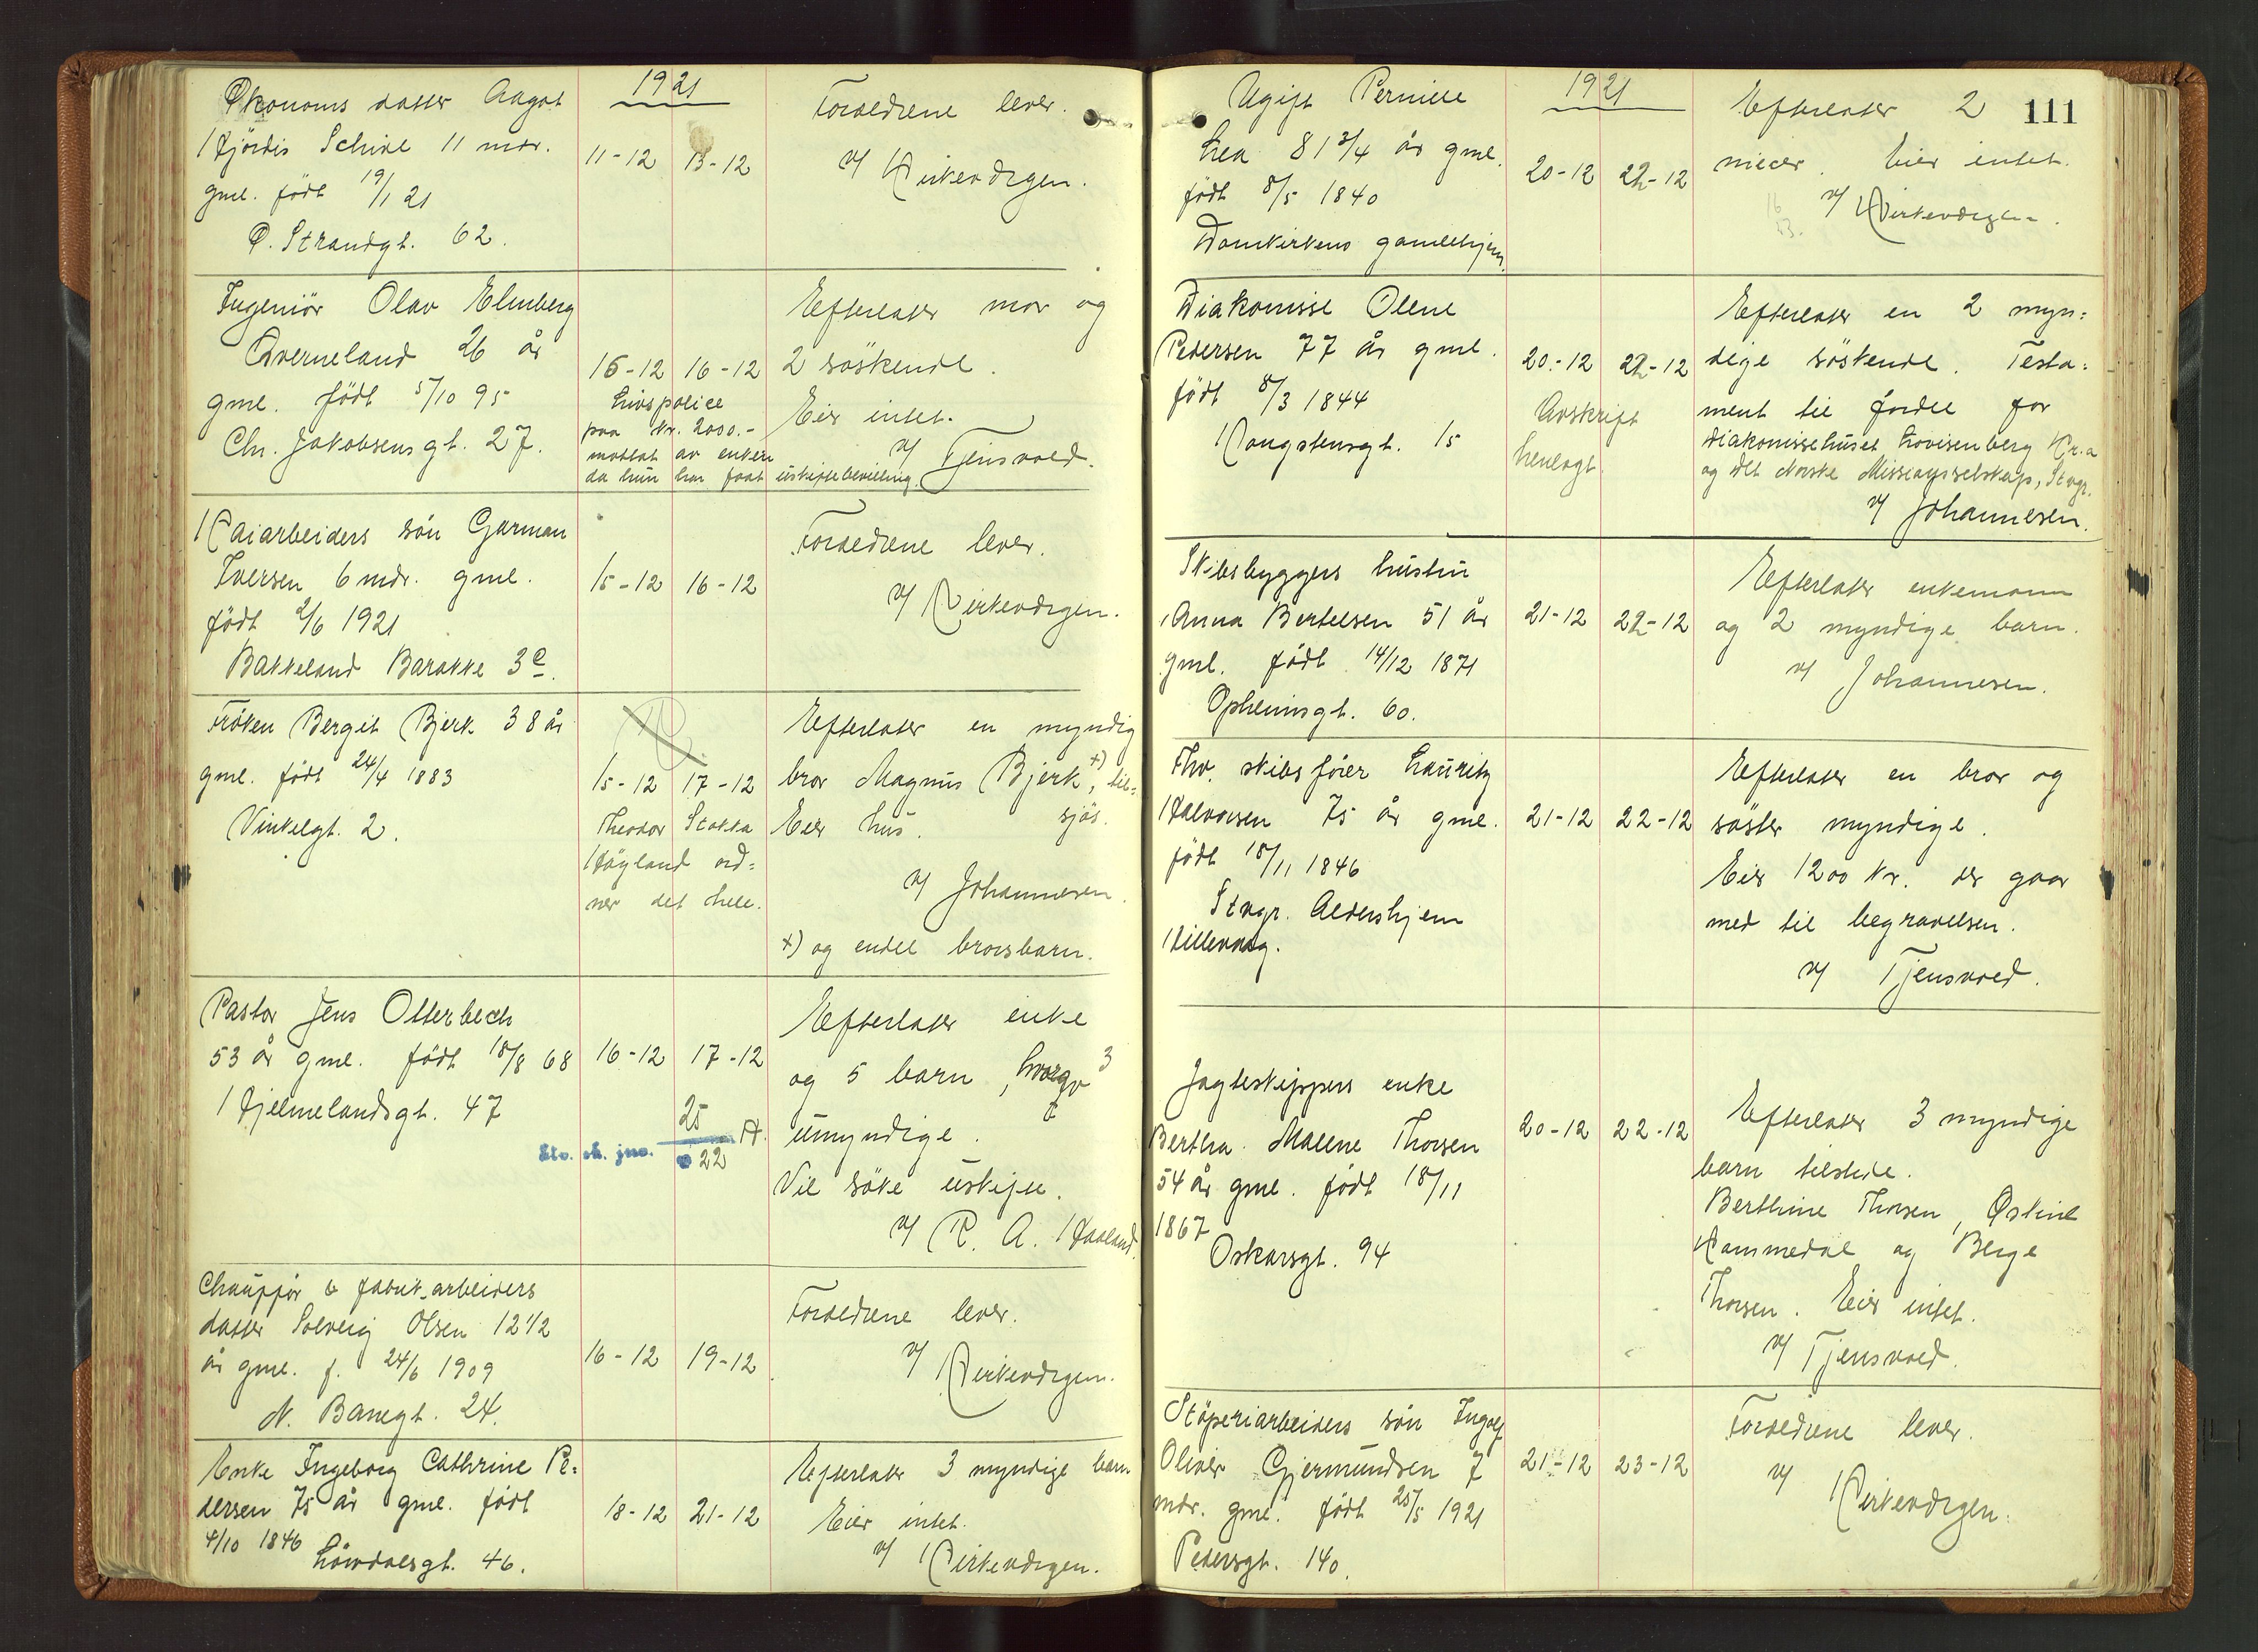 Økonoms datter Aagot
Hjördis Schive 11 mdr.
gml. född 19/1 21
Ø. Strandgt. 62.
1921
11-12 13-12
Forældrene lever.
v/ Kirkevergen.
Ingeniör Olav Elmberg
Qverneland 26 år
gml. född 5/10 95
Chr. Jakobsensgt. 27.
15-12 16-12
Livspolice
paa Kr. 2000.-
mottat av enken
da hun har faat uskiftebevilling.
Efterlater mor og
2 söskende.
Eier intet.
v/ Tjensvold.
Kaiarbeiders sön Garman
Iversen 6 mdr. gml.
född 2/6 1921
Bakkeland Barakke 3c.
15-12 16-12
Forældrene lever.
v/ Kirkevergen.
Fröken Berget Bjerk 38 år
gml. född 24/4 1883
Vinkelgt. 2.
15-12 17-12
Theodor Stokka
Höyland ord=
ner det hele.
Efterlater en myndig
bror Magnus Bjerk, +) til=
sjös.
Eier hus.
v/ Johannesen.
+) og endel brorsbarn.
Pastor Jens Otterbech
53 år gml. född 18/8 68
Hjelmelandsgt. 47
16-12 17-12
25
22
Efterlater enke
og 5 barn, hvorav 3
umyndige.
Vil söke uskifte.
v/ R. A. Haaland.
Chauffør & fabrik arbeiders
datter Solveig Olsen 12 1/2
år gml. f. 24/6 1909
N. Banegt. 24.
16-12 19-12
Forældrene lever.
v/ Kirkevergen.
Enke Ingeborg Cathrine Pe=
dersen 75 år gml. född
4/10 1846
Lövdalsgt. 46.
18-12 21-12
Efterlater 3 myndige barn
Eier intet.
v/ Kirkevergen.
111
Ugift Pernille
Lea 81 3/4 år gml.
född 8/5 1840
Domkirkens gamlehjem.
1921
20-12 22-12
Efterlater 2
niecer. Eier intet.
v/ Kirkevergen.
Diakonisse Olene
Pedersen 77 år gml.
född 8/3 1844
Kongstensgt. 15
20-12 22-12
Avskrift
henlagt.
Efterlater en 2 myn=
dige söskende. Testa=
ment til fordel for
Diakonissehuset Lovisenberg Kr.a
og Det Norske Missionsselskap, Stvgr.
v/ Johannesen.
Skibsbyggers hustru
Anna Bertelsen 51 år
gml. född 14/12 1871
Opheimsgt. 60.
21-12 22-12
Efterlater enkemann
og 2 myndige barn.
v/ Johannesen.
Fhv. skibsförer Lauritz
Halvorsen 75 år gml.
född 18/11 1846
Stvgr. Aldershjem
Hillevaag.
21-12 22-12
Efterlater en bror og
söster myndige.
Eier 1200 Kr. der gaar
med til begravelsen.
v/ Tjensvold.
Jagteskippers enke
Bertha Malene Thorsen
54 år gml. född 18/11
1867
Oskarsgt. 94
20-12 22-12
Efterlater 3 myndige
barn tilstede.
Berthine Thorsen, Østine
Kammedal og Berge
Thorsen. Eier intet.
v/ Tjensvold.
Stöperiarbeiders sön Ingolf
Oliver Gjermundsen 7
mdr. gml. född 25/5 1921
Pedersgt. 140.
21-12 23-12
Forældrene lever.
v/ Kirkevergen.